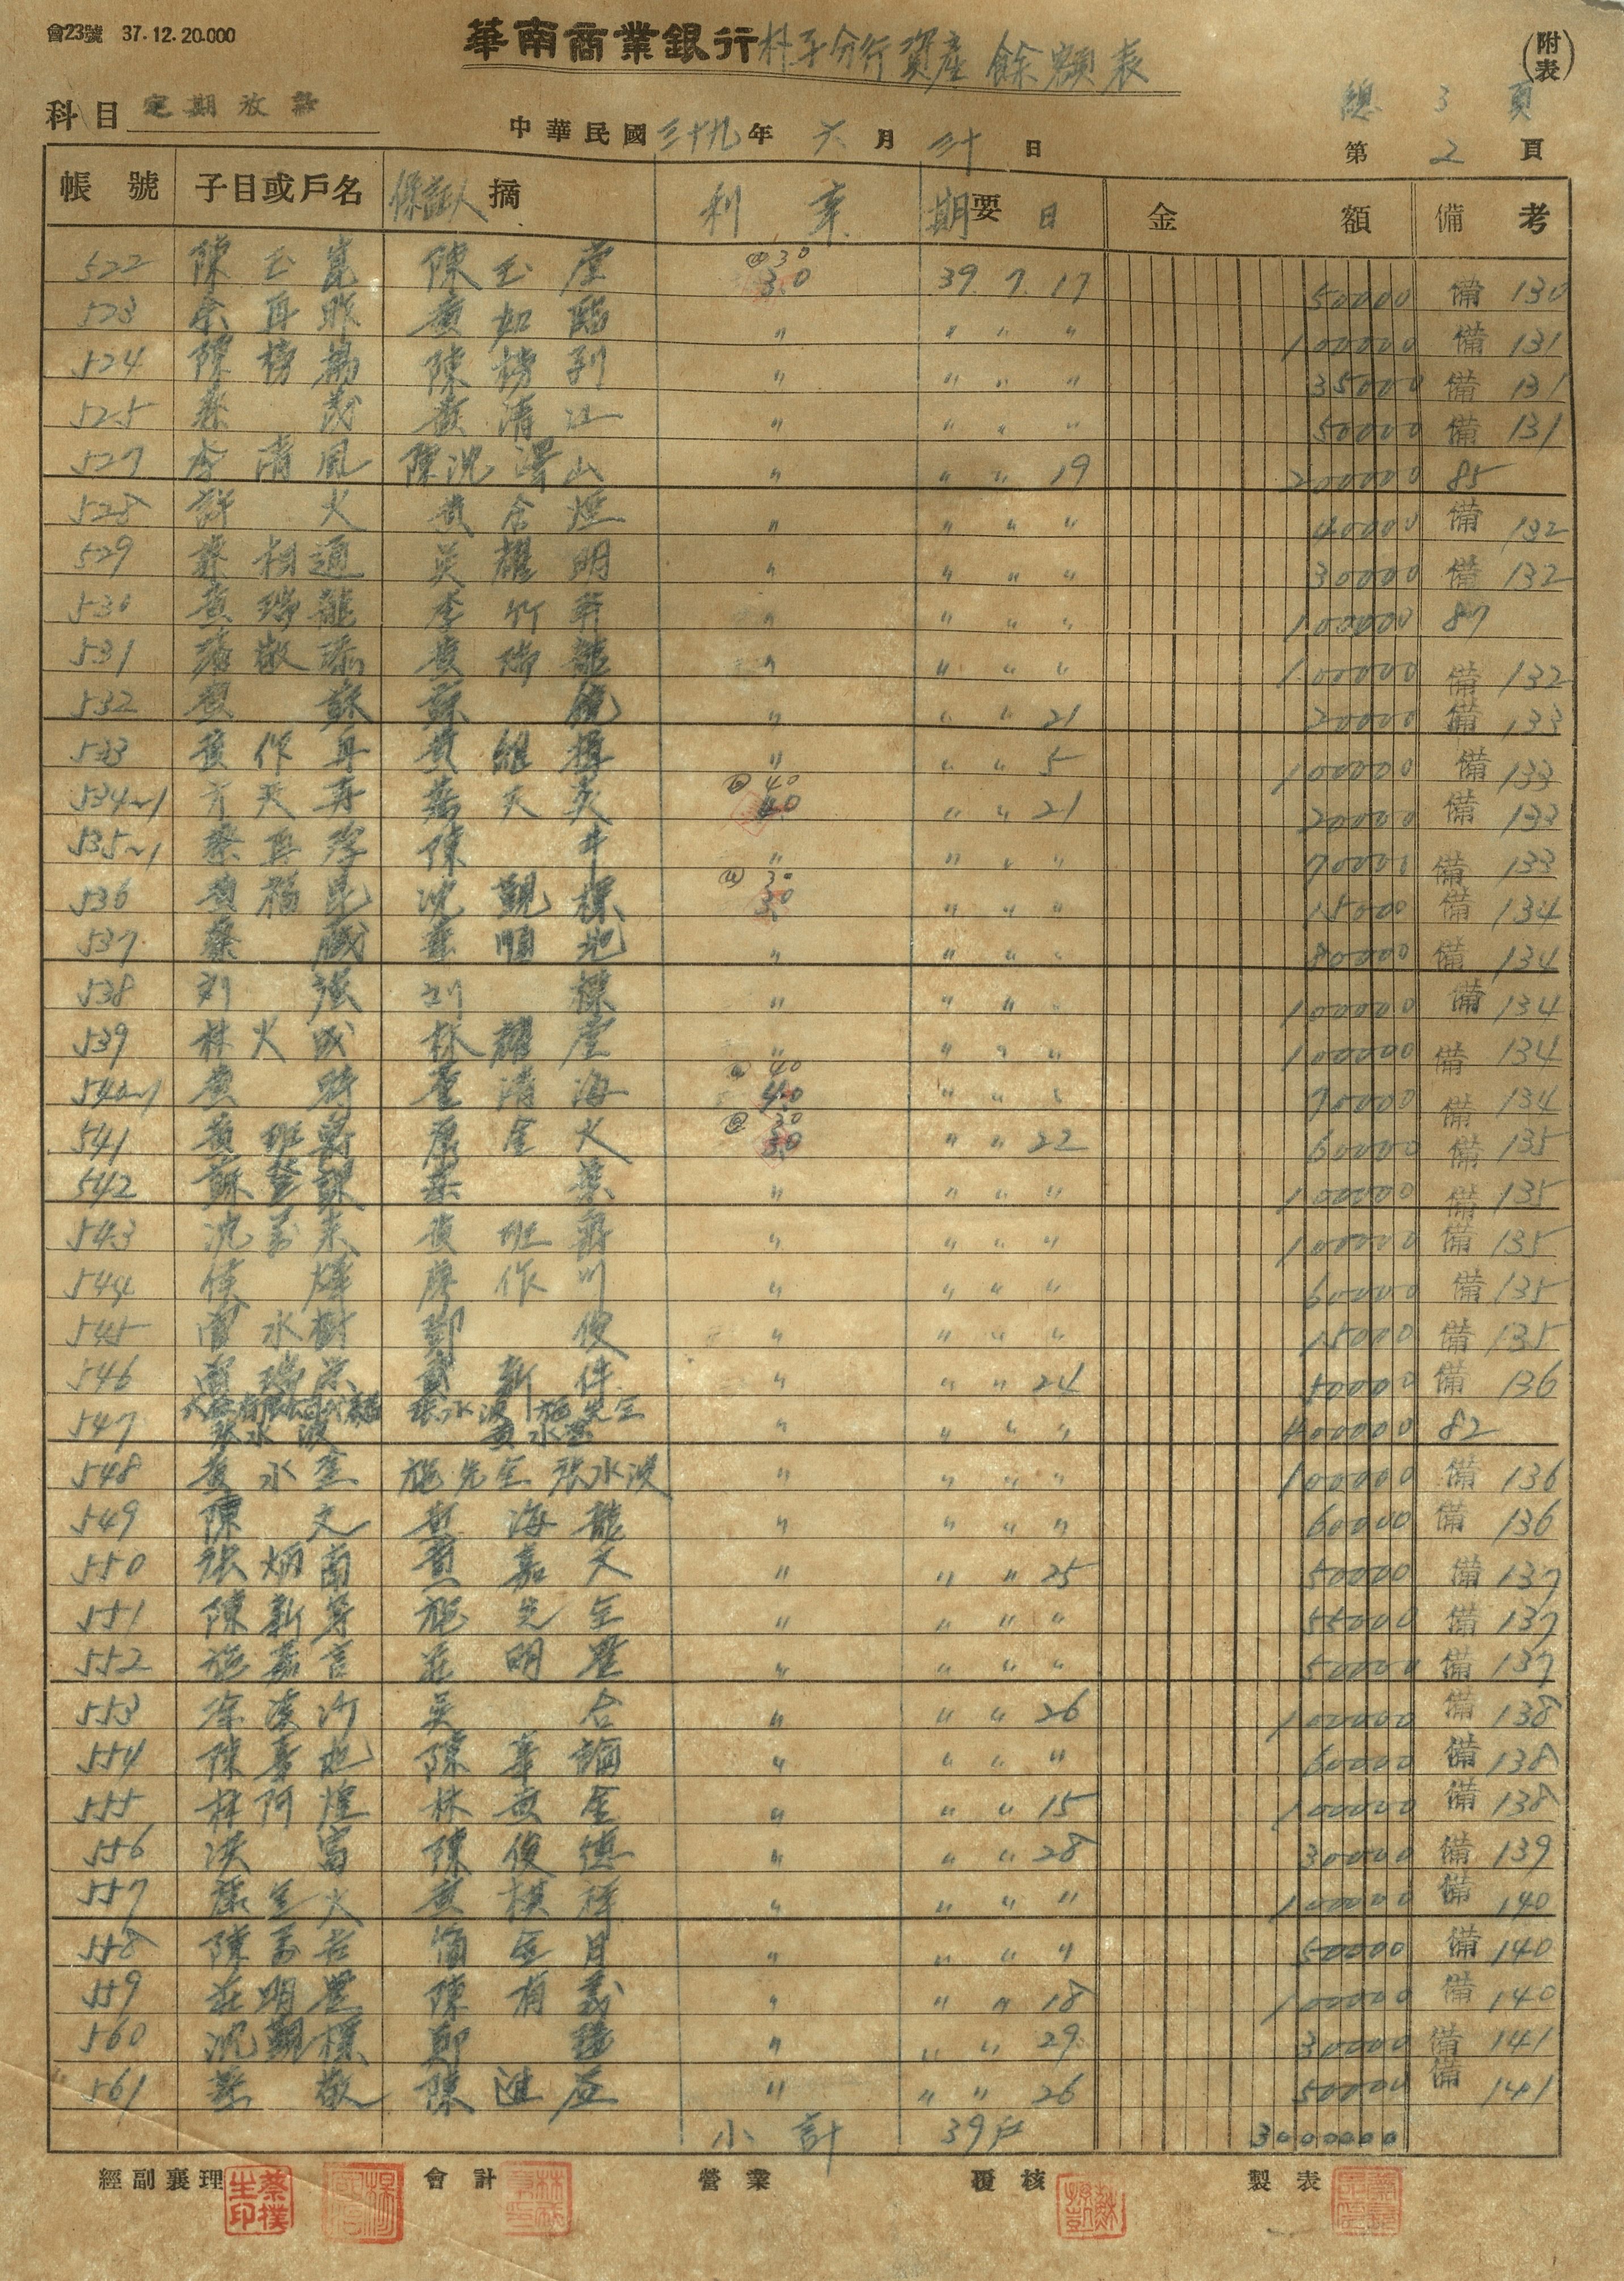 會23號 37.12.20.000
華南商業銀行朴子分行資產餘額表
(附表)
總 3 頁
科目 定期放款
中華民國三十九年 六月 三十日
第 2 頁
帳號 子目或戶名 保証人 摘 利率 期要日 金額 備考
522 陳玉崑 陳玉堂 @30 3.0 39 7 17 50000 備 130
523 余再昨 黃如 " " " " 100000 備 131
524 陳榜 陳榜 " " " " 35000 備 131
525 蔡茂 黃清江 " " " " 50000 備 131
527 李清風 陳沈澤山 " " " 19 200000 85
528 許火 黃含煙 " " " " 40000 備 132
529 蔡相通 吳耀明 " " " " 30000 備 132
530 黃瑞龍 李竹軒 " " " " 100000 87
531 敬 黃瑞龍 " " " " 100000 備 132
532 蘇 蘇 " " " 21 20000 備 133
533 黃作舟 黃組 " " " 5 100000 備 133
534~1 天再 天 @40 40 " " 21 20000 備 133
535~1 蔡再 陳牛 " " " " 70000 備 133
536 黃福昆 沈觀標 @30 3.0 " " " 15000 備 134
537 蔡 順地 " " " " 80000 備 134
538 刘強 刘標 " " " " 100000 備 134
539 林火成 林耀堂 " " " " 100000 備 134
540~1 黃 清海 @40 40 " " " 70000 備 134
541 黃班爵 金火 @30 30 " " 22 60000 備 135
542 蘇登 蔡 " " " " 100000 備 135
543 沈萬來 黃班爵 " " " " 100000 備 135
544 侯 廖作川 " " " " 60000 備 135
545 水樹 鄭俊 " " " " 15000 備 135
546 瑞 新 " " " 24 50000 備 136
547 張水波 張水波 施先全 黃水 " " " " 400000 82
548 黃水 施先全 張水波 " " " " 100000 備 136
549 陳文 海龍 " " " " 60000 備 136
550 張炳南 黃嘉文 " " " 25 50000 備 137
551 陳新 施先全 " " " " 55000 備 137
552 施嘉言 莊明星 " " " " 50000 備 137
553 徐 吳合 " " " 26 100000 備 138
554 陳 陳 " " " " 60000 備 138
555 林阿煌 林黃金 " " " 15 100000 備 138
556 洪富 陳俊德 " " " 28 30000 備 139
557 金火 黃棋祥 " " " " 100000 備 140
558 陳萬 金月 " " " " 50000 備 140
559 莊明星 陳有義 " " " 18 100000 備 140
560 沈觀標 鄭 " " " 29 30000 備 141
561 蔡敬 陳進益 " " " 26 50000 備 141
小計 39戶 3000000
經副襄理 會計 營業 覆核 製表
蔡撲生印